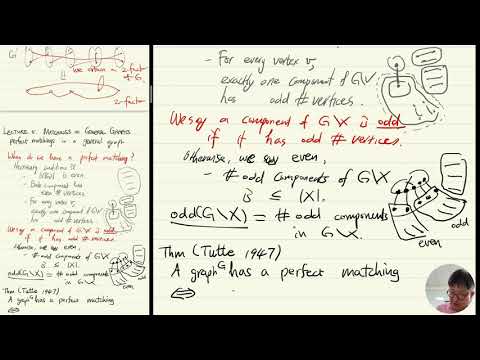 we obtain a 2-factor
of G.
2-factor
LECTURE 5. MATCHINGS IN GENERAL GRAPHS
perfect matchings in a general graph
When do we have a perfect matching?
Necessary conditions of
|V(G)| is even.
- Each component has
even # vertices.
- For every vertex v,
exactly one component of G\X
has odd # vertices.
We say a component of G\X is odd
if it has odd # vertices.
Otherwise, we say even,
- # odd components of G\X
is ≤ |X|.
odd(G\X) = # odd components
in G\X.
even
odd
Thm (Tutte 1947)
A graph G has a perfect matching
⇔
- For every vertex v,
exactly one component of G\X
has odd # vertices.
We say a component of G\X is odd
if it has odd # vertices.
Otherwise, we say even,
- # odd components of G\X
is ≤ |X|.
odd(G\X) = # odd components
in G\X.
even
odd
Thm (Tutte 1947)
A graph G has a perfect matching
⇔